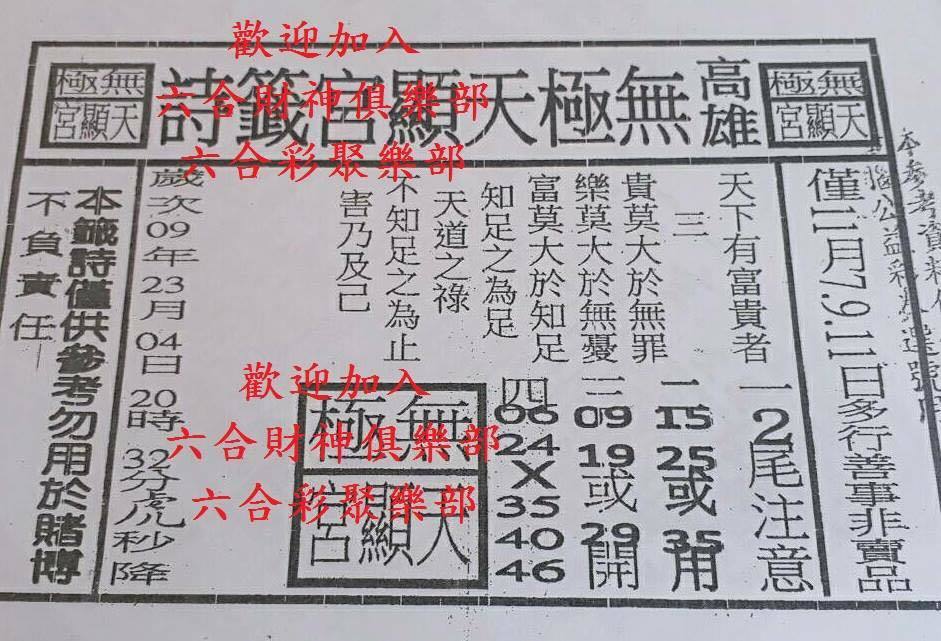 歡迎加入
六合財神俱樂部
六合彩聚樂部
無極
天顯宮
高雄
無極天顯宮籤詩
無極
天顯宮
僅11月7.9.11日多行善事非賣品
天下有富貴者
三
貴莫大於無罪
樂莫大於無憂
富莫大於知足
知足之為足
天道之祿
不知足之為止
害乃及己
一 2尾注意
二 15 25或 35 用
三 09 19或 29 開
四 06 24 X 35 40 46
歲次09年23月04日20時32分虎秒降
本籤詩僅供參考勿用於賭博
不負責任
歡迎加入
六合財神俱樂部
六合彩聚樂部
無極
天顯宮